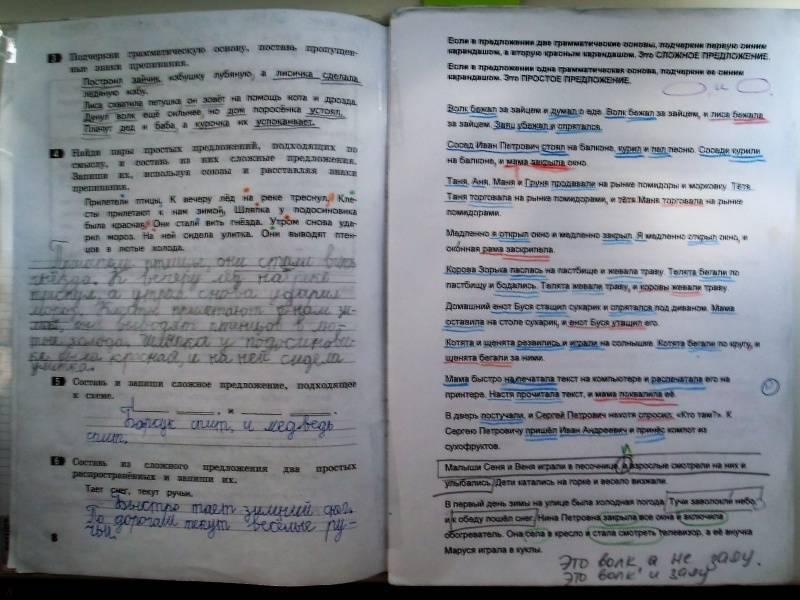 3 Подчеркни грамматическую основу, поставь пропущен-
ные знаки препинания.
Построил зайчик избушку лубяную, а лисичка сделала
ледяную избу.
Лиса схватила петушка он зовёт на помощь кота и дрозда.
Дунул волк ещё сильнее но дом поросёнка устоял.
Плачут дед и баба а курочка их успокаивает.
4 Найди пары простых предложений, подходящих по
смыслу, и составь из них сложные предложения.
Запиши их, используя союзы и расставляя знаки
препинания.
Прилетели птицы. К вечеру лёд на реке треснул. Кле-
сты прилетают к нам зимой. Шляпка у подосиновика
была красная. Они стали вить гнёзда. Утром снова уда-
рил мороз. На ней сидела улитка. Они выводят птен-
цов в лютые холода.
Прилетели птицы, они стали вить
гнёзда. К вечеру лёд на реке
треснул, а утром снова ударил
мороз. Клесты прилетают к нам зи-
мой, они выводят птенцов в лю-
тые холода. Шляпка у подосинови-
ка была красная, и на ней сидела
улитка.
5 Составь и запиши сложное предложение, подходящее
к схеме.
и
Барсук спит, и медведь
спит.
6 Составь из сложного предложения два простых
распространённых и запиши их.
Тает снег, текут ручьи.
Быстро тает зимний
По дорогам текут весёлые ру-
чьи.
8
Если в предложении две грамматические основы, подчеркни первую синим
карандашом, а вторую красным карандашом. Это СЛОЖНОЕ ПРЕДЛОЖЕНИЕ.
Если в предложении одна грамматическая основа, подчеркни ее синим
карандашом. Это ПРОСТОЕ ПРЕДЛОЖЕНИЕ.
Волк бежал за зайцем и думал о еде. Волк бежал за зайцем, и лиса бежала
за зайцем. Заяц убежал и спрятался.
Сосед Иван Петрович стоял на балконе, курил и пел песню. Соседи курили
на балконе, и мама закрыла окно.
Таня, Аня, Маня и Груня продавали на рынке помидоры и морковку. Тётя
Таня торговала на рынке помидорами, и тётя Маня торговала на рынке
помидорами.
Медленно я открыл окно и медленно закрыл. Я медленно открыл окно, и
оконная рама заскрипела.
Корова Зорька паслась на пастбище и жевала траву. Телята бегали по
пастбищу и бодались. Телята жевали траву, и коровы жевали траву.
Домашний енот Буся стащил сухарик и спрятался под диваном. Мама
оставила на столе сухарик, и енот Буся утащил его.
Котята и щенята резвились и играли на солнышке. Котята бегали по кругу, и
щенята бегали за ними.
Мама быстро напечатала текст на компьютере и распечатала его на
принтере. Настя прочитала текст, и мама похвалила её.
В дверь постучали, и Сергей Петрович нехотя спросил: «Кто там?». К
Сергею Петровичу пришёл Иван Андреевич и принёс компот из
сухофруктов.
и
Малыши Сеня и Веня играли в песочнице, а взрослые смотрели на них и
улыбались. Дети катались на горке и весело визжали.
В первый день зимы на улице была холодная погода. Тучи заволокли небо,
и к обеду пошёл снег. Нина Петровна закрыла все окна и включила
обогреватель. Она села в кресло и стала смотреть телевизор, а её внучка
Маруся играла в куклы.
Это волк, а не заяц.
Это волк и заяц